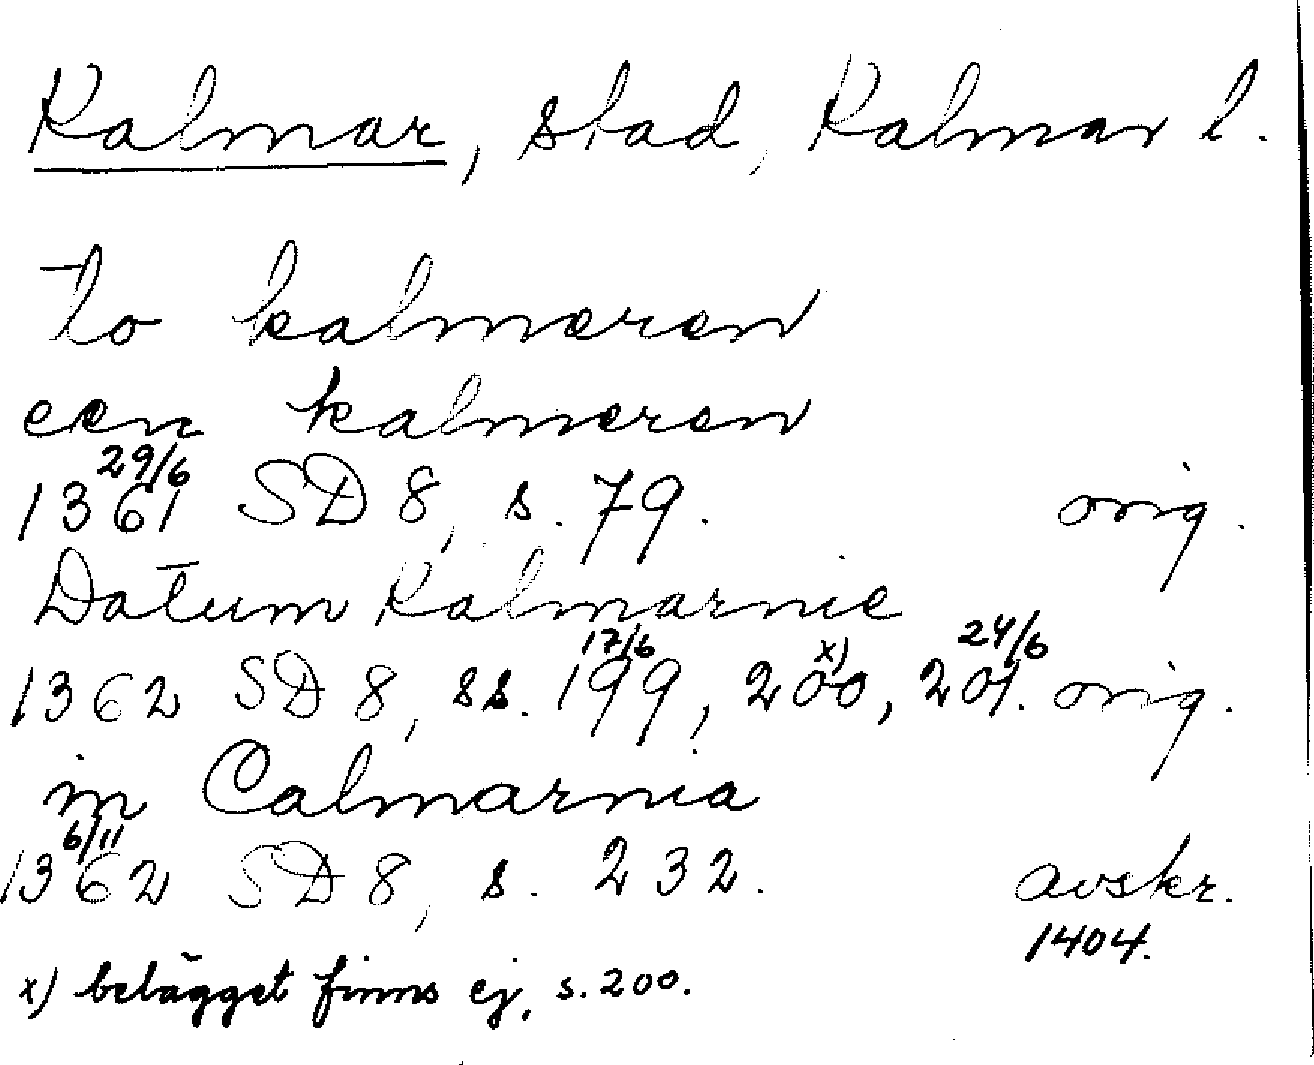 Kalmar, stad, Kalmar l.
to kalmeren
een kalmeren
29/6
1361 SD 8, s. 79. orig.
Datum Kalmarnie
17/6 x) 24/6
1362 SD 8, ss. 199, 200, 201. orig.
in Calmarnia
6/11
1362 SD 8, s. 232. avskr.
1404.
x) belägget finns ej, s. 200.